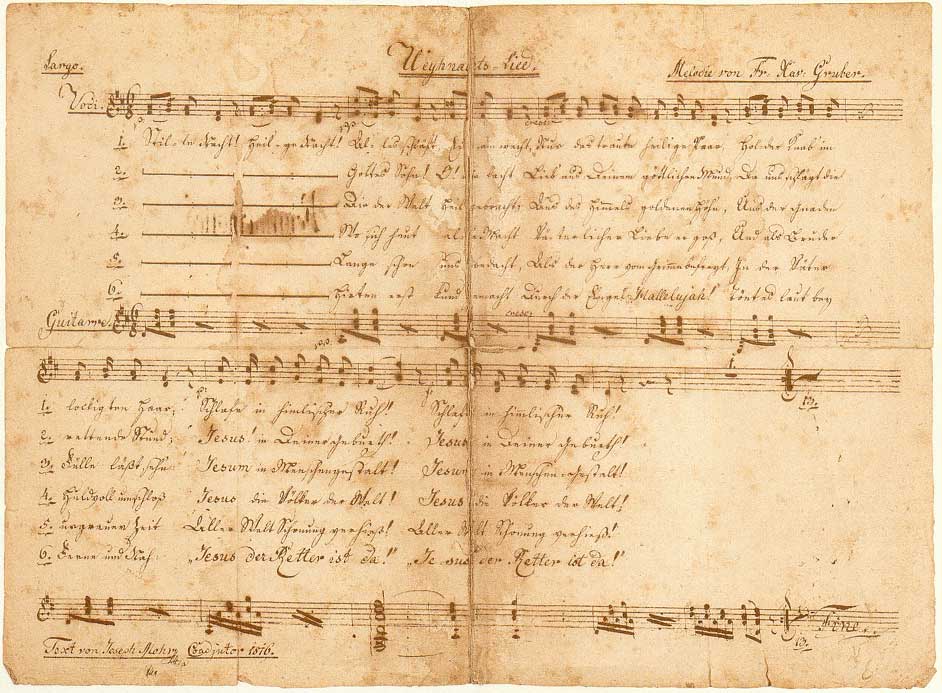 Largo. Weyhnachts-Lied. Melodie von Fr: Xav: Gruber.
Voci.
cresc:
1. Stil-le Nacht! Heil-ge Nacht! Al-les schläft, wacht, Nur das traute heilige Paar, Hol-der Knab' im
2. Gottes Sohn! O! lacht Lieb aus Deinem göttlichen Mund, Da uns schlägt die
3. Die der Welt Heil gebracht; Aus des Himmels goldenen Höhn, Aus der Gnaden
4. Wo sich heut Macht Väterlicher Liebe ergoß, Und als Bruder
5. Lange schon uns bedacht, Als der Herr vom Grimme befreyt, In der Väter
6. Hirten erst kund gemacht Durch der Engel Hallelujah! Tönt es laut bey
Guitarre. cresc:
1. lockigten Haar; Schlafe in himlischer Ruh! Schlafe in himlischer Ruh!
2. rettende Stund; Jesus! in Deiner Geburth! Jesus in Deiner Geburth!
3. Fülle läßt sehn Jesum in Menschengestalt! Jesum in Menschen-Gestalt!
4. Huldvoll umschloß Jesus die Völker der Welt! Jesus die Völker der Welt!
5. urgrauer Zeit Aller Welt Schonung verhieß! Aller Welt Schonung verhieß!
6. Ferne und Nah: „Jesus der Retter ist da!" „Jesus der Retter ist da!"
Fine.
Text von Joseph Mohr Coadjutor 1816.